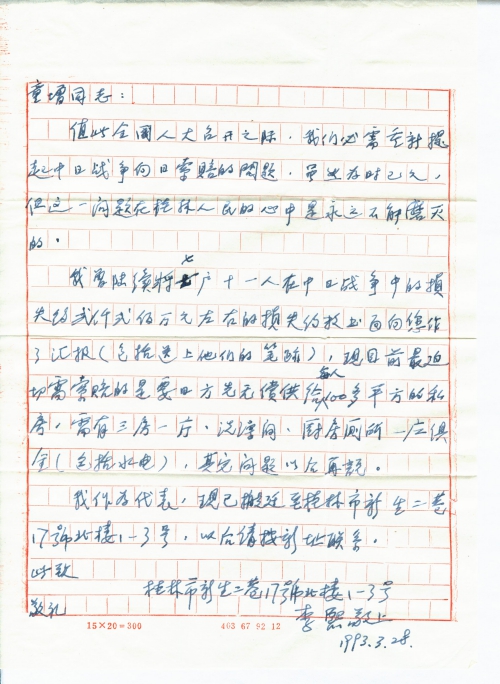 童增同志：
值此全国人大召开之际，我们必需重新提
起中日战争向日索赔的问题，虽然存时已久，
但这一问题在桂林人民的心中是永远不能磨灭
的。
我要陆续将七户十一人在中日战争中的损
失约贰仟贰佰万元左右的损失约 书面向您作
了汇报（包括 上他们的笔 ），现目前最迫
切需索赔的是要日方先无偿供给每人100多平方的私
房，需有三房一厅，洗澡间、厨房厕所一应俱
全（包括水电），其它问题以后再说。
我作为代表，现已搬迁至桂林市新生二巷
17号北楼1-3号，以后请按新址联系。
此致
桂林市新生二巷17号北楼1-3号
敬礼
李熙 敬上
1993.3.28.
15×20=300
403 67 92 12